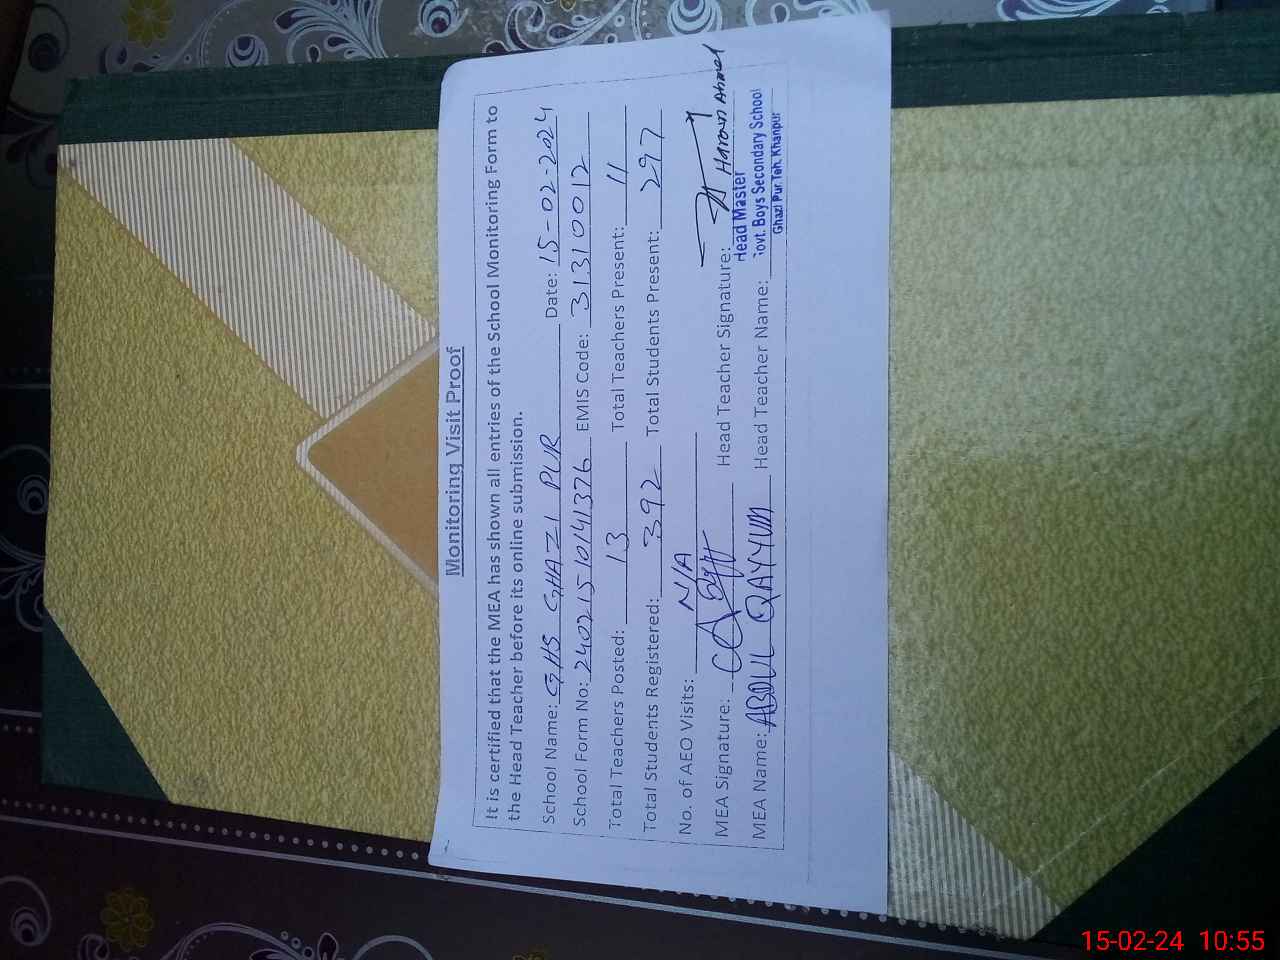 Monitoring Visit Proof
It is certified that the MEA has shown all entries of the School Monitoring Form to
the Head Teacher before its online submission.
School Name: GHS GHAZI PUR Date: 15-02-2024
School Form No: 24021510141376 EMIS Code: 31310012
Total Teachers Posted: 13 Total Teachers Present: 11
Total Students Registered: 392 Total Students Present: 297
No. of AEO Visits: N/A
MEA Signature: Head Teacher Signature: Haroun Ahmed
MEA Name: ABDUL QAYYUM Head Teacher Name:
Head Master
Govt. Boys Secondary School
Ghazi Pur Teh. Khanpur
15-02-24 10:55